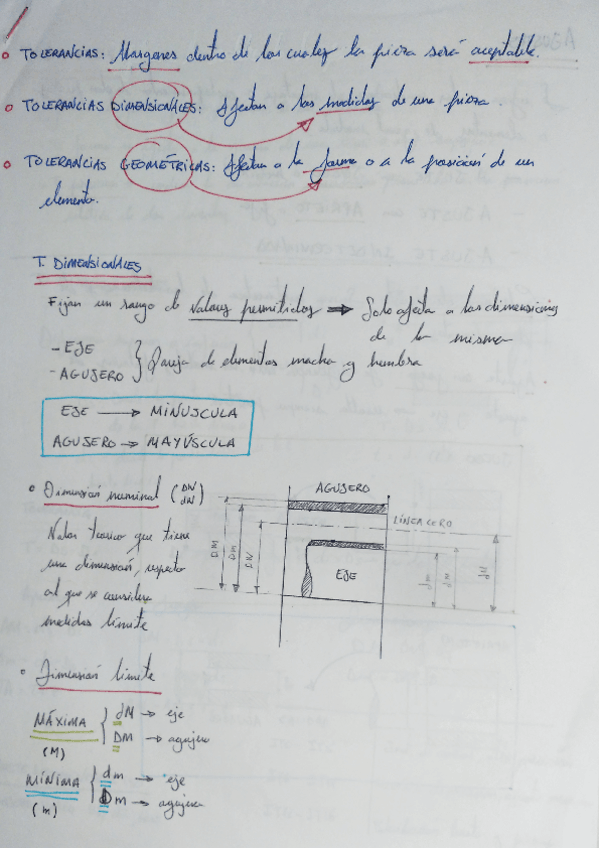 TOLERANCIAS: Margenes dentro de los cuales la pieza será aceptable.
TOLERANCIAS DIMENSIONALES: Afectan a las medidas de una pieza.
TOLERANCIAS GEOMÉTRICAS: Afectan a la forma o a la posición de un
elemento.
T. DIMENSIONALES
Fijan un rango de valores permitidos ⇒ Solo afecta a las dimensiones
de la misma
- EJE
- AGUJERO } Pareja de elementos macho y hembra
EJE → MINUSCULA
AGUJERO → MAYÚSCULA
Dimensión nominal (DN
dN)
Valor teorico que tiene
una dimensión, respecto
al que se considera
medidas límite
AGUJERO
LÍNEA CERO
EJE
DM
Dm
DN
dm
dM
dN
Dimensión límite
MÁXIMA (M) { dM → eje
DM → agujero
MÍNIMA (m) { dm → eje
Dm → agujero